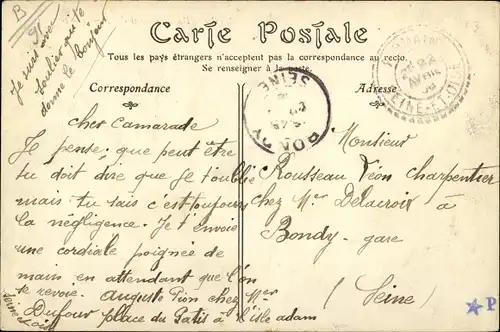 B
Je suis avec
toulier qui te
donne le bonjour
Carte Postale
Tous les pays étrangers n'acceptent pas la correspondance au recto.
Se renseigner à la poste.
Correspondance
Adresse
SEINE
BONDY
SEINE-ET-OISE
cher Camarade
Je pense, que peut être
tu doit dire que Je t'oublie
mais tu sais c'est toujours
la négligence. Je t'envoie
une cordiale poignée de
main en attendant que l'on
te revoie. Auguste Pion chez Mer
Dufour place du Patis à l'isle adam
Seine et oise
Monsieur
Rousseau Léon charpentier
chez Mer Delacroix à
Bondy - gare
(Seine)
P